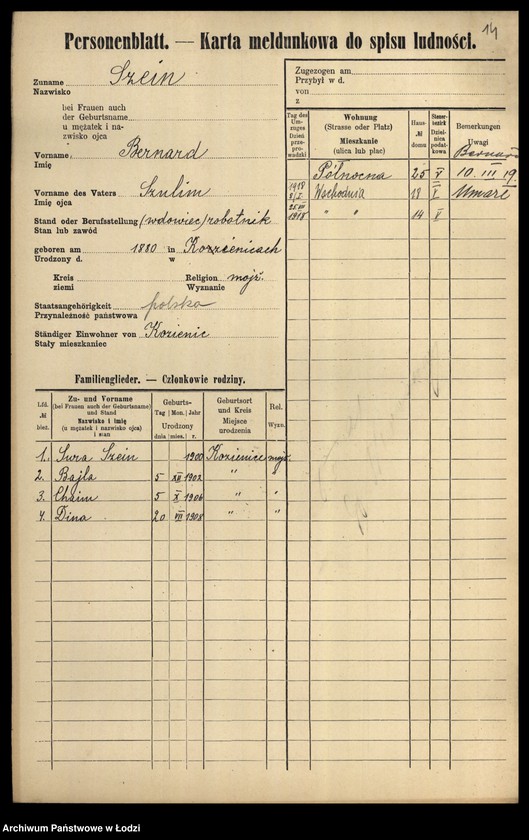 14
Personenblatt. — Karta meldunkowa do spisu ludności.
Zuname Szein
Nazwisko
bei Frauen auch
der Geburtsname
u mężatek i na-
zwisko ojca
Vorname Bernard
Imię
Vorname des Vaters Szulim
Imię ojca
Stand oder Berufsstellung (wdowiec) robotnik
Stan lub zawód
geboren am 1880 in Kozienicach
Urodzony d. w
Kreis Religion mojż.
ziemi Wyznanie
Staatsangehörigkeit polska
Przynależność państwowa
Ständiger Einwohner von Kozienic
Stały mieszkaniec
Zugezogen am
Przybył w d.
von
z
Tag des Um-zuges Dzień prze-prowadzki
Wohnung (Strasse oder Platz) Mieszkanie (ulica lub plac)
Haus- № domu
Steuer-bezirk Dziel-nica podat-kowa
Bemerkungen Uwagi
Bernard
Północna 25 V 10. III 19.
1918 8/I Wschodnia 18 I. Umarł
25 III 1918 " " 14 V
Familienglieder. — Członkowie rodziny.
Lfd. № bież.
Zu- und Vorname (bei Frauen auch der Geburtsname) und Stand Nazwisko i imię (u mężatek i nazwisko ojca) i stan
Geburts- Tag Mon. Jahr Urodzony dnia mies. r.
Geburtsort und Kreis Miejsce urodzenia
Rel. Wyzn.
1. Sura Szein 1900 Kozienice mojż.
2. Bajla 5 XII 1902 " "
3. Chaim 5 X 1906 " "
4. Dina 20 VII 1908 " "
Archiwum Państwowe w Łodzi